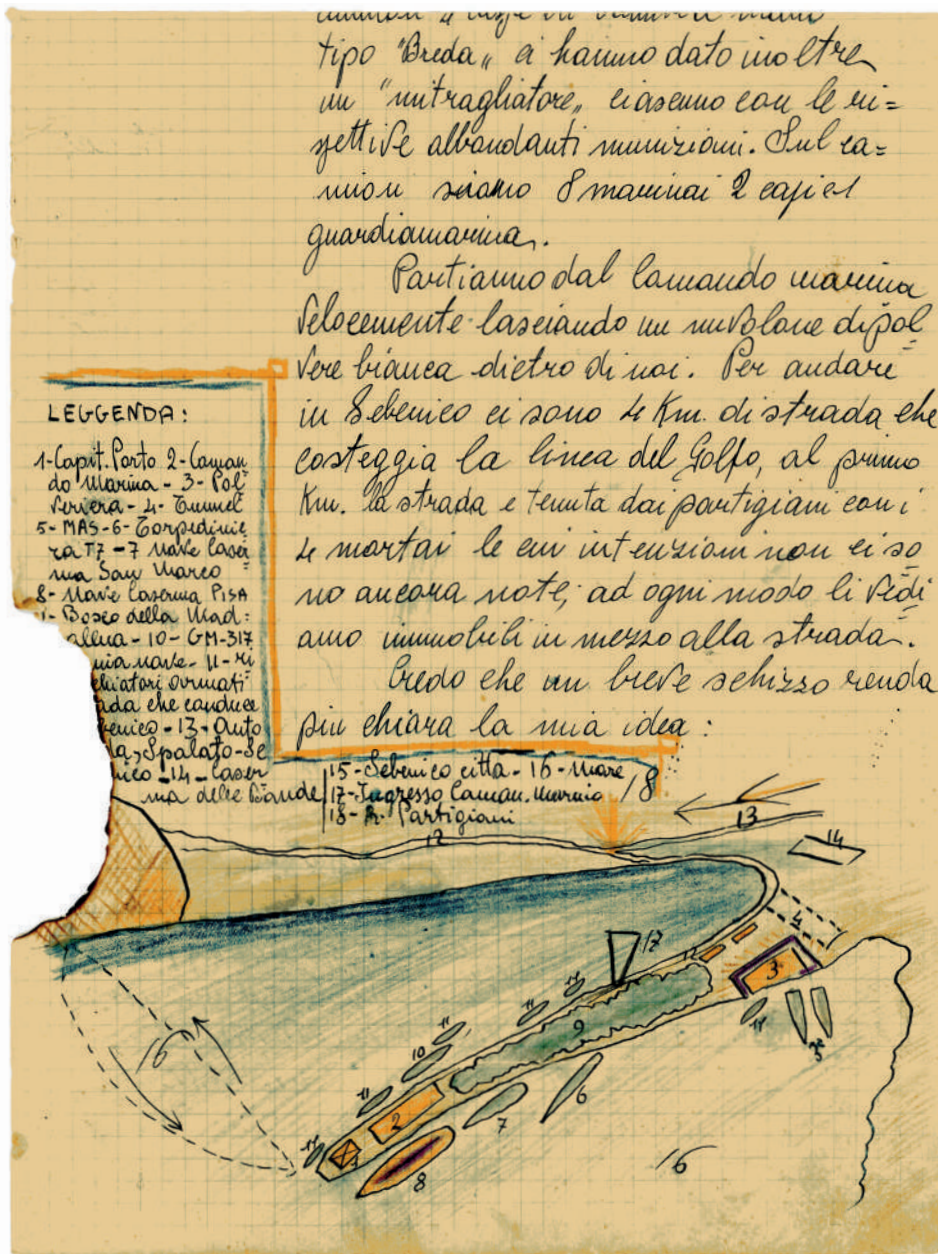 tipo "Breda„ ci hanno dato inoltre
un "mitragliatore„ ciascuno con le ri=
spettive abbondanti munizioni. Sul ca=
mion siamo 8 marinai 2 capi e 1
guardiamarina.
Partiamo dal Comando marina
velocemente lasciando un nuvolone di pol=
vere bianca dietro di noi. Per andare
in Sebenico ci sono 4 Km. di strada che
costeggia la linea del Golfo, al primo
Km. la strada e tenuta dai partigiani con i
4 mortai le cui intenzioni non ci so
no ancora note; ad ogni modo li vedi
amo immobili in mezzo alla strada.
Credo che un breve schizzo renda
piu chiara la mia idea:
LEGGENDA:
1-Capit. Porto 2-Coman
do Marina - 3- Pol=
veriera - 4- Tunnel
5- MAS - 6- Torpedinie=
ra T7 - 7 Nave Caser=
ma San Marco
8- Nave Caserma PISA
- Bosco della Mad:
alena - 10 - GM-317
mia nave - 11 - ri
chiatori armati
ada che conduce
benico - 13 - Auto
la, Spalato-Se
nico - 14 - Caser
ma delle Bande
15- Sebenico citta - 16- Mare
17- Ingresso Coman. Marina
18- Partigiani
18
13
12
14
4
17
3
11
11
5
11
9
11
10
6
16
11
2
7
11
1
8
16